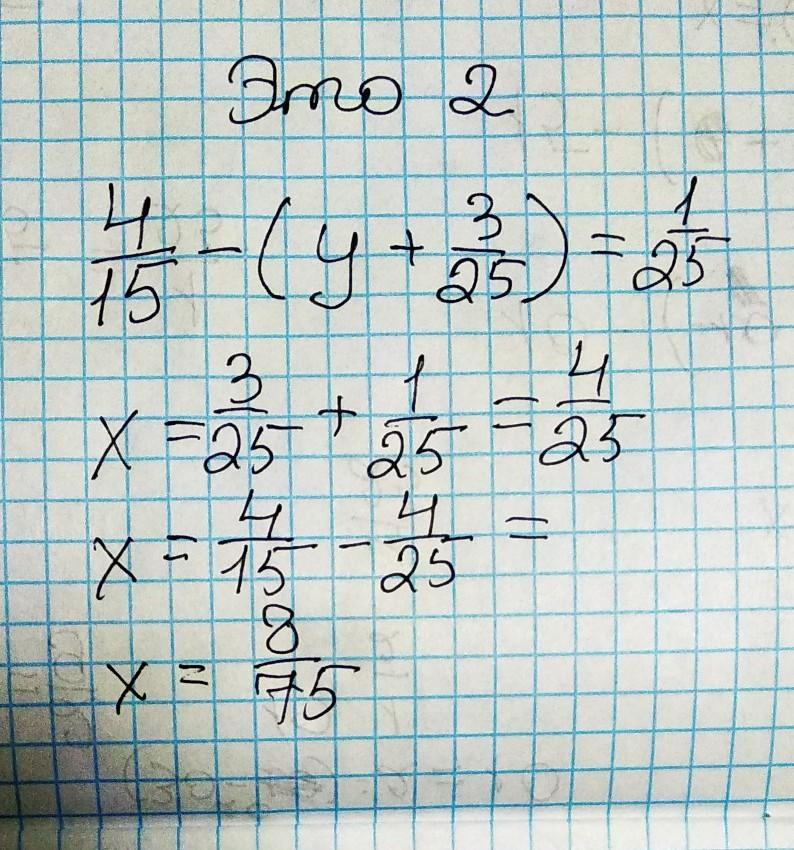 Это 2
4/15 - (y + 3/25) = 1/25
x = 3/25 + 1/25 = 4/25
x = 4/15 - 4/25 =
x = 8/75